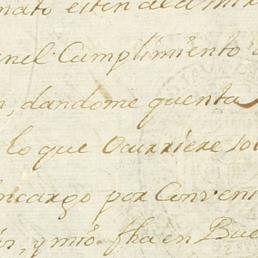 nato esten al
enel Cumplimiento
dandome quenta
lo que Ocurriere
por Conveni
y mío fha en Bue